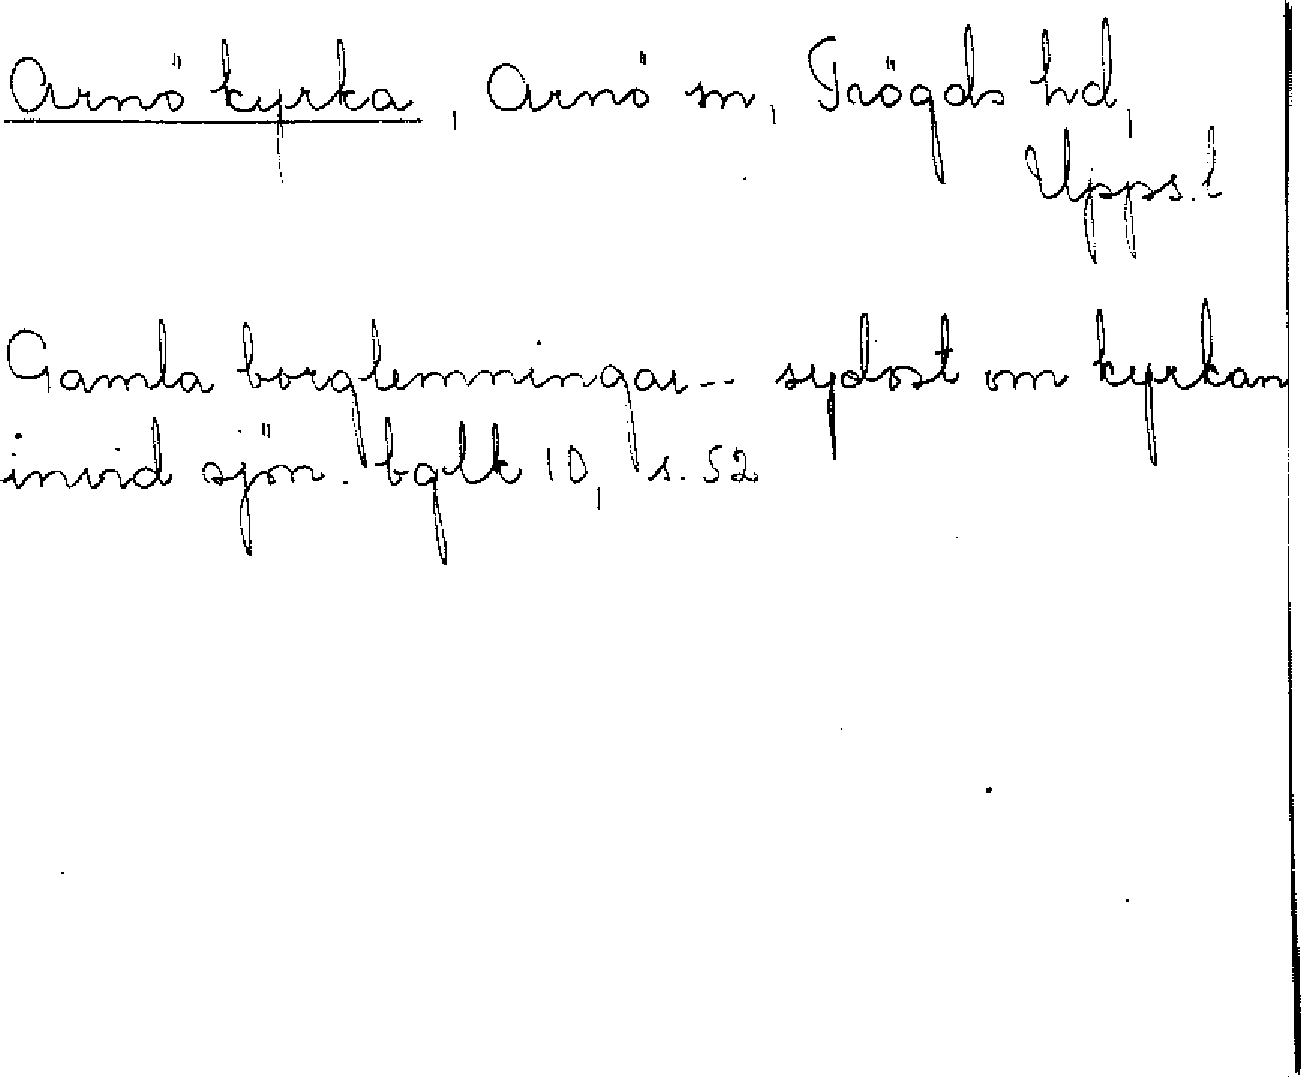 Arnö kyrka, Arnö sn, Trögds hd,
Upps. l
Gamla borglemningar-- sydost om kyrkan
invid sjön. bglk 10, s. 52